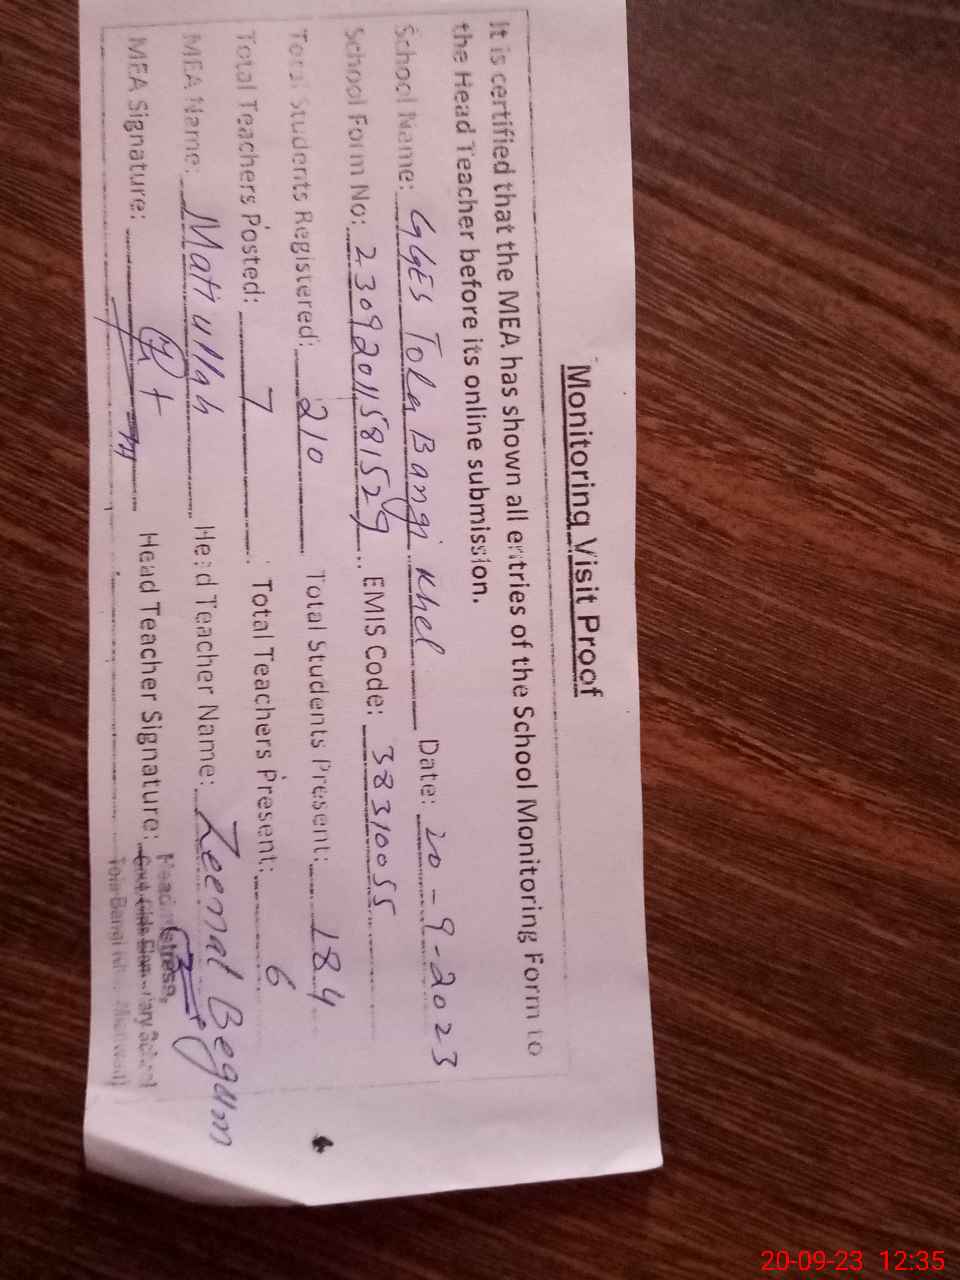 Monitoring Visit Proof
It is certified that the MEA has shown all entries of the School Monitoring Form to
the Head Teacher before its online submission.
School Name: GGES Tola Bangi Khel Date: 20-9-2023
School Form No: 2309201158152 EMIS Code: 38310055
Total Students Registered: 210 Total Students Present: 184
Total Teachers Posted: 7 Total Teachers Present: 6
MEA Name: Matiullah Head Teacher Name: Zeenat Begum
MEA Signature: Head Teacher Signature:
Headmistress,
Govt. Girls Elementary School
Tola Bangi
20-09-23 12:35